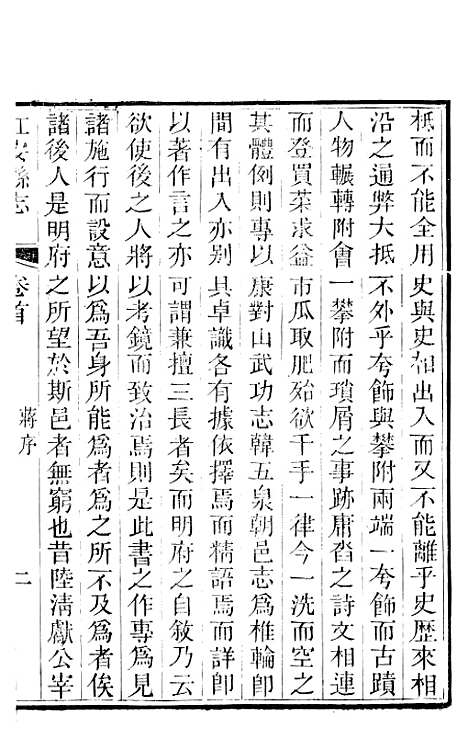 柢而不能全用史與史相出入而又不能離乎史歷來相
沿之通弊大抵不外乎夸飾與攀附兩端一夸飾而古蹟
人物輾轉附會一攀附而瑣屑之事跡庸沓之詩文相連
而登買菜求益市瓜取肥殆欲千手一律今一洗而空之
其體例則專以康對山武功志韓五泉朝邑志爲椎輪卽
間有出入亦别具卓識各有據依擇焉而精語焉而詳卽
以著作言之亦可謂兼擅三長者矣而明府之自敘乃云
欲使後之人將以考鏡而致治焉則是此書之作專爲見
諸施行而設意以爲吾身所能爲者爲之所不及爲者俟
諸後人是明府之所望於斯邑者無窮也昔陸清獻公宰
江安縣志 卷首 蔣序 二